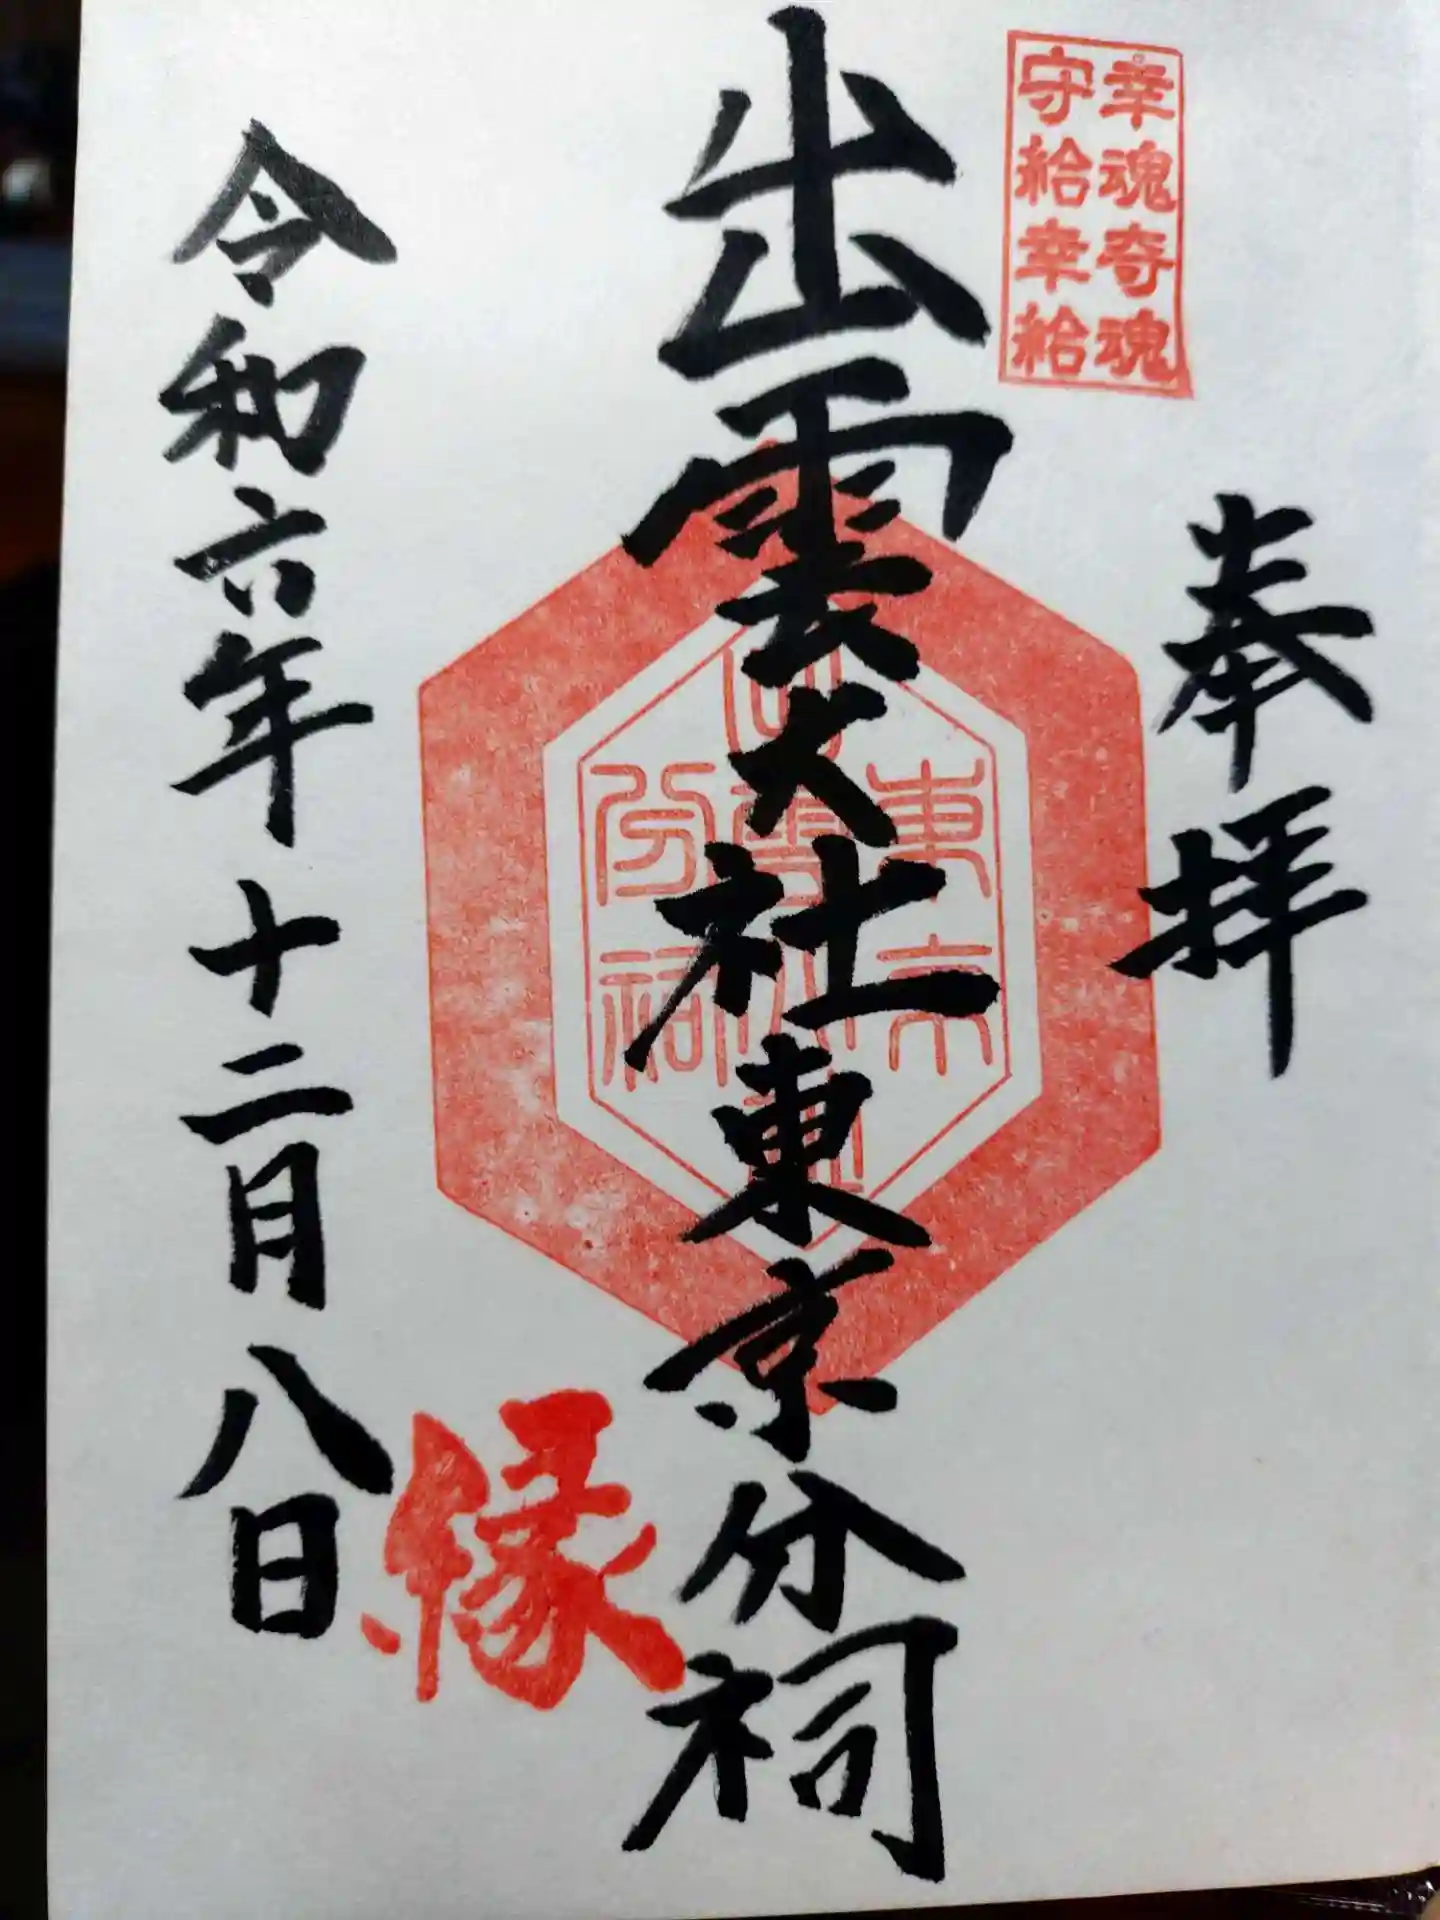 幸魂奇魂
守給幸給
奉拝
出雲大社東京分祠
東京
出雲大社
分祠
縁
令和六年十二月八日